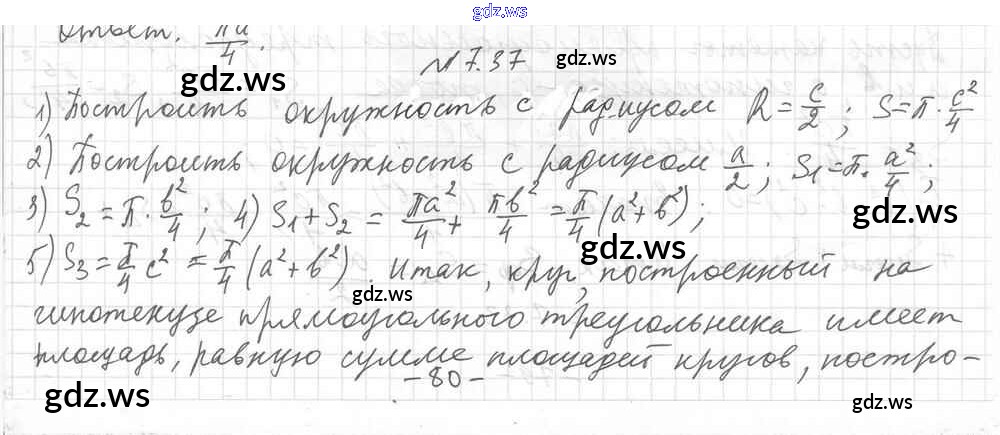 gdz.ws
Ответ. πa/4.
gdz.ws
№ 7.37
gdz.ws
1) Построить окружность с радиусом R = c/2; S = π · c²/4
2) Построить окружность с радиусом a/2; S₁ = π · a²/4;
gdz.ws
3) S₂ = π · b²/4; 4) S₁ + S₂ = πa²/4 + πb²/4 = π/4 (a² + b²);
gdz.ws
5) S₃ = π/4 c² = π/4 (a² + b²). Итак, круг, построенный на
gdz.ws
гипотенузе прямоугольного треугольника имеет
площадь, равную сумме площадей кругов, постро-
-80-
gdz.ws
gdz.ws
gdz.ws